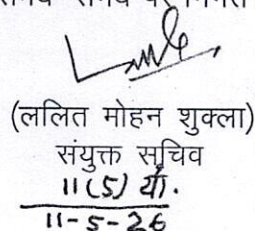 (ललित मोहन शुक्ला)
संयुक्त सचिव
11(5) यो.
11-5-26